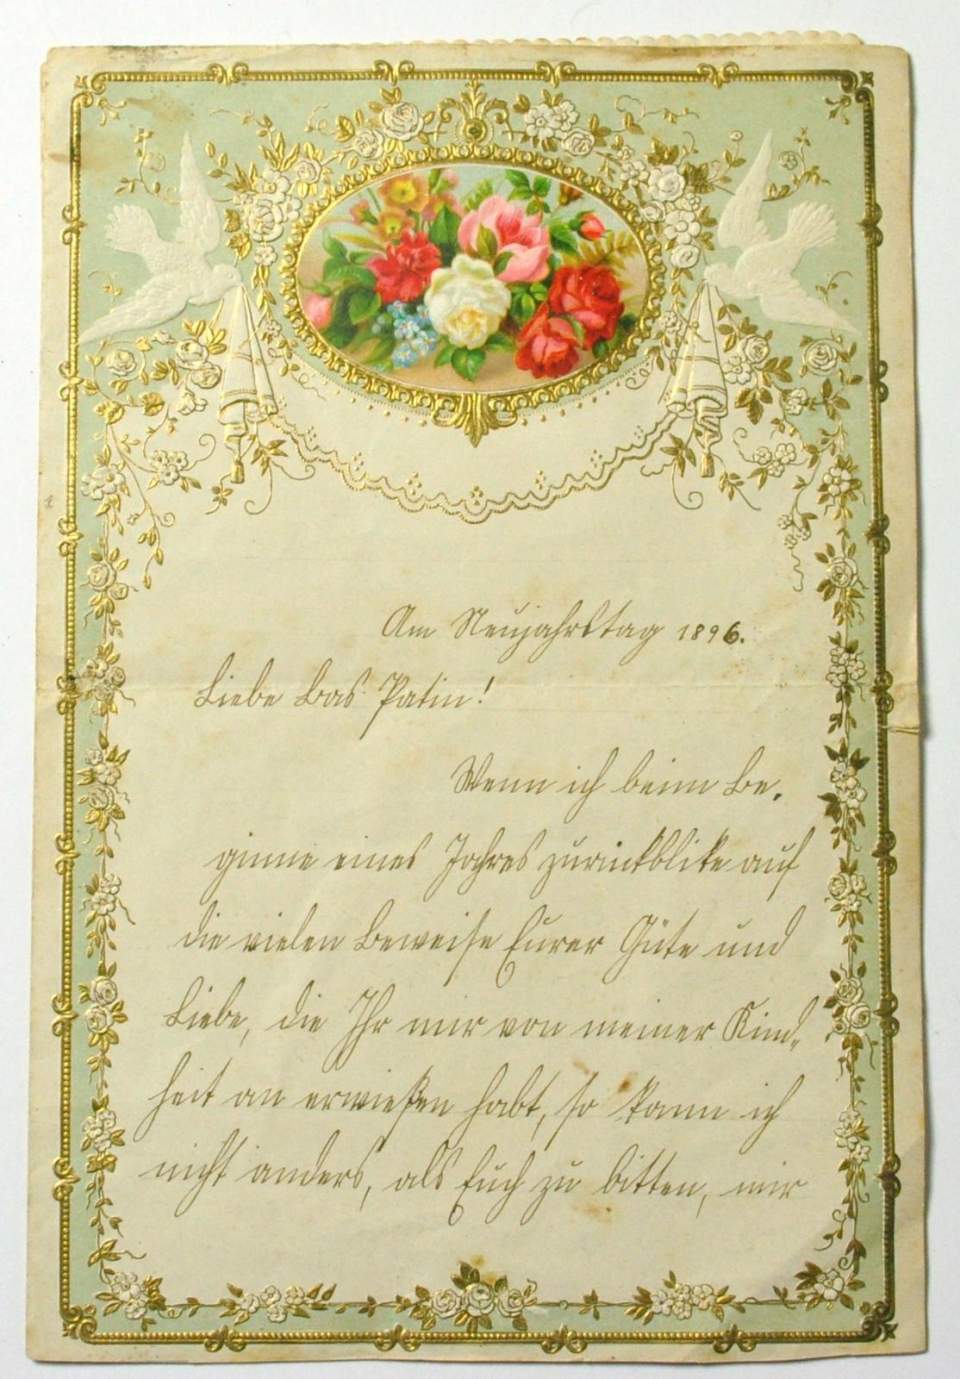 Am Neujahrstag 1896.
Liebe Bas Patin!
Wenn ich beim Be-
ginne eines Jahres zurückblike auf
die vielen Beweise Eurer Güte und
Liebe, die Ihr mir von meiner Kind-
heit an erwießen habt, so kann ich
nicht anders, als Euch zu bitten, mir